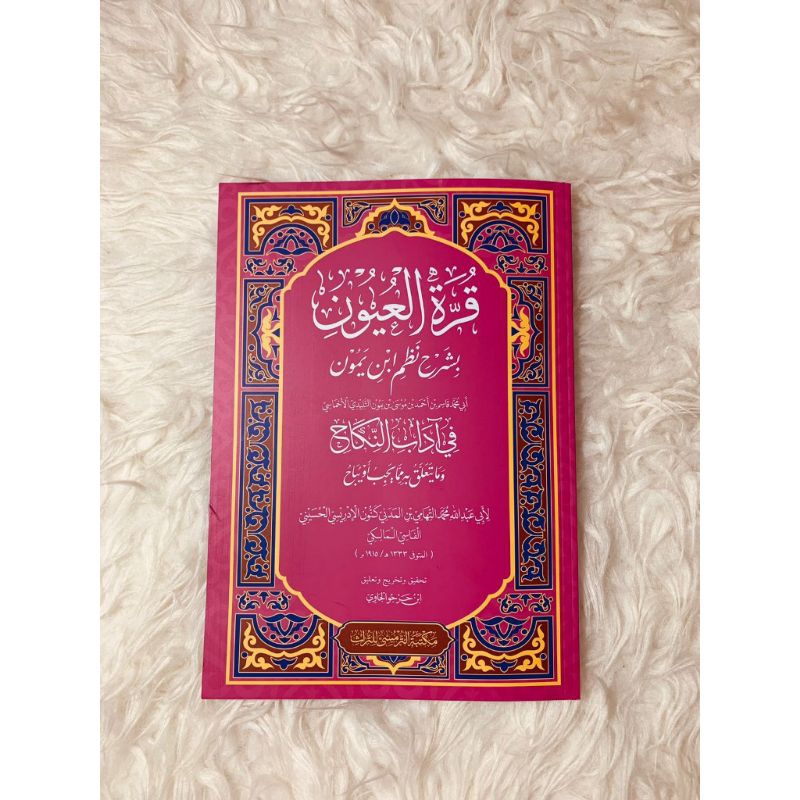 قُرَّةُ الْعُيُونِ
بِشَرْحِ نَظْمِ ابْنِ يَمُون
أبي محمد قاسم بن أحمد بن موسى بن يمون التليدي الأخماسي
فِي آدَابِ النِّكَاحِ
وَمَا يَتَعَلَّقُ بِهِ مِمَّا يَجِبُ أَوْ يُبَاحُ
لأبي عبد الله محمد التهامي بن المدني كنون الإدريسي الحسيني
الفاسي المالكي
( المتوفى ١٣٣٣ هـ / ١٩١٥ م )
تحقيق وتخريج وتعليق
ابن حرجو الجاوي
مكتبة الترمسي للتراث